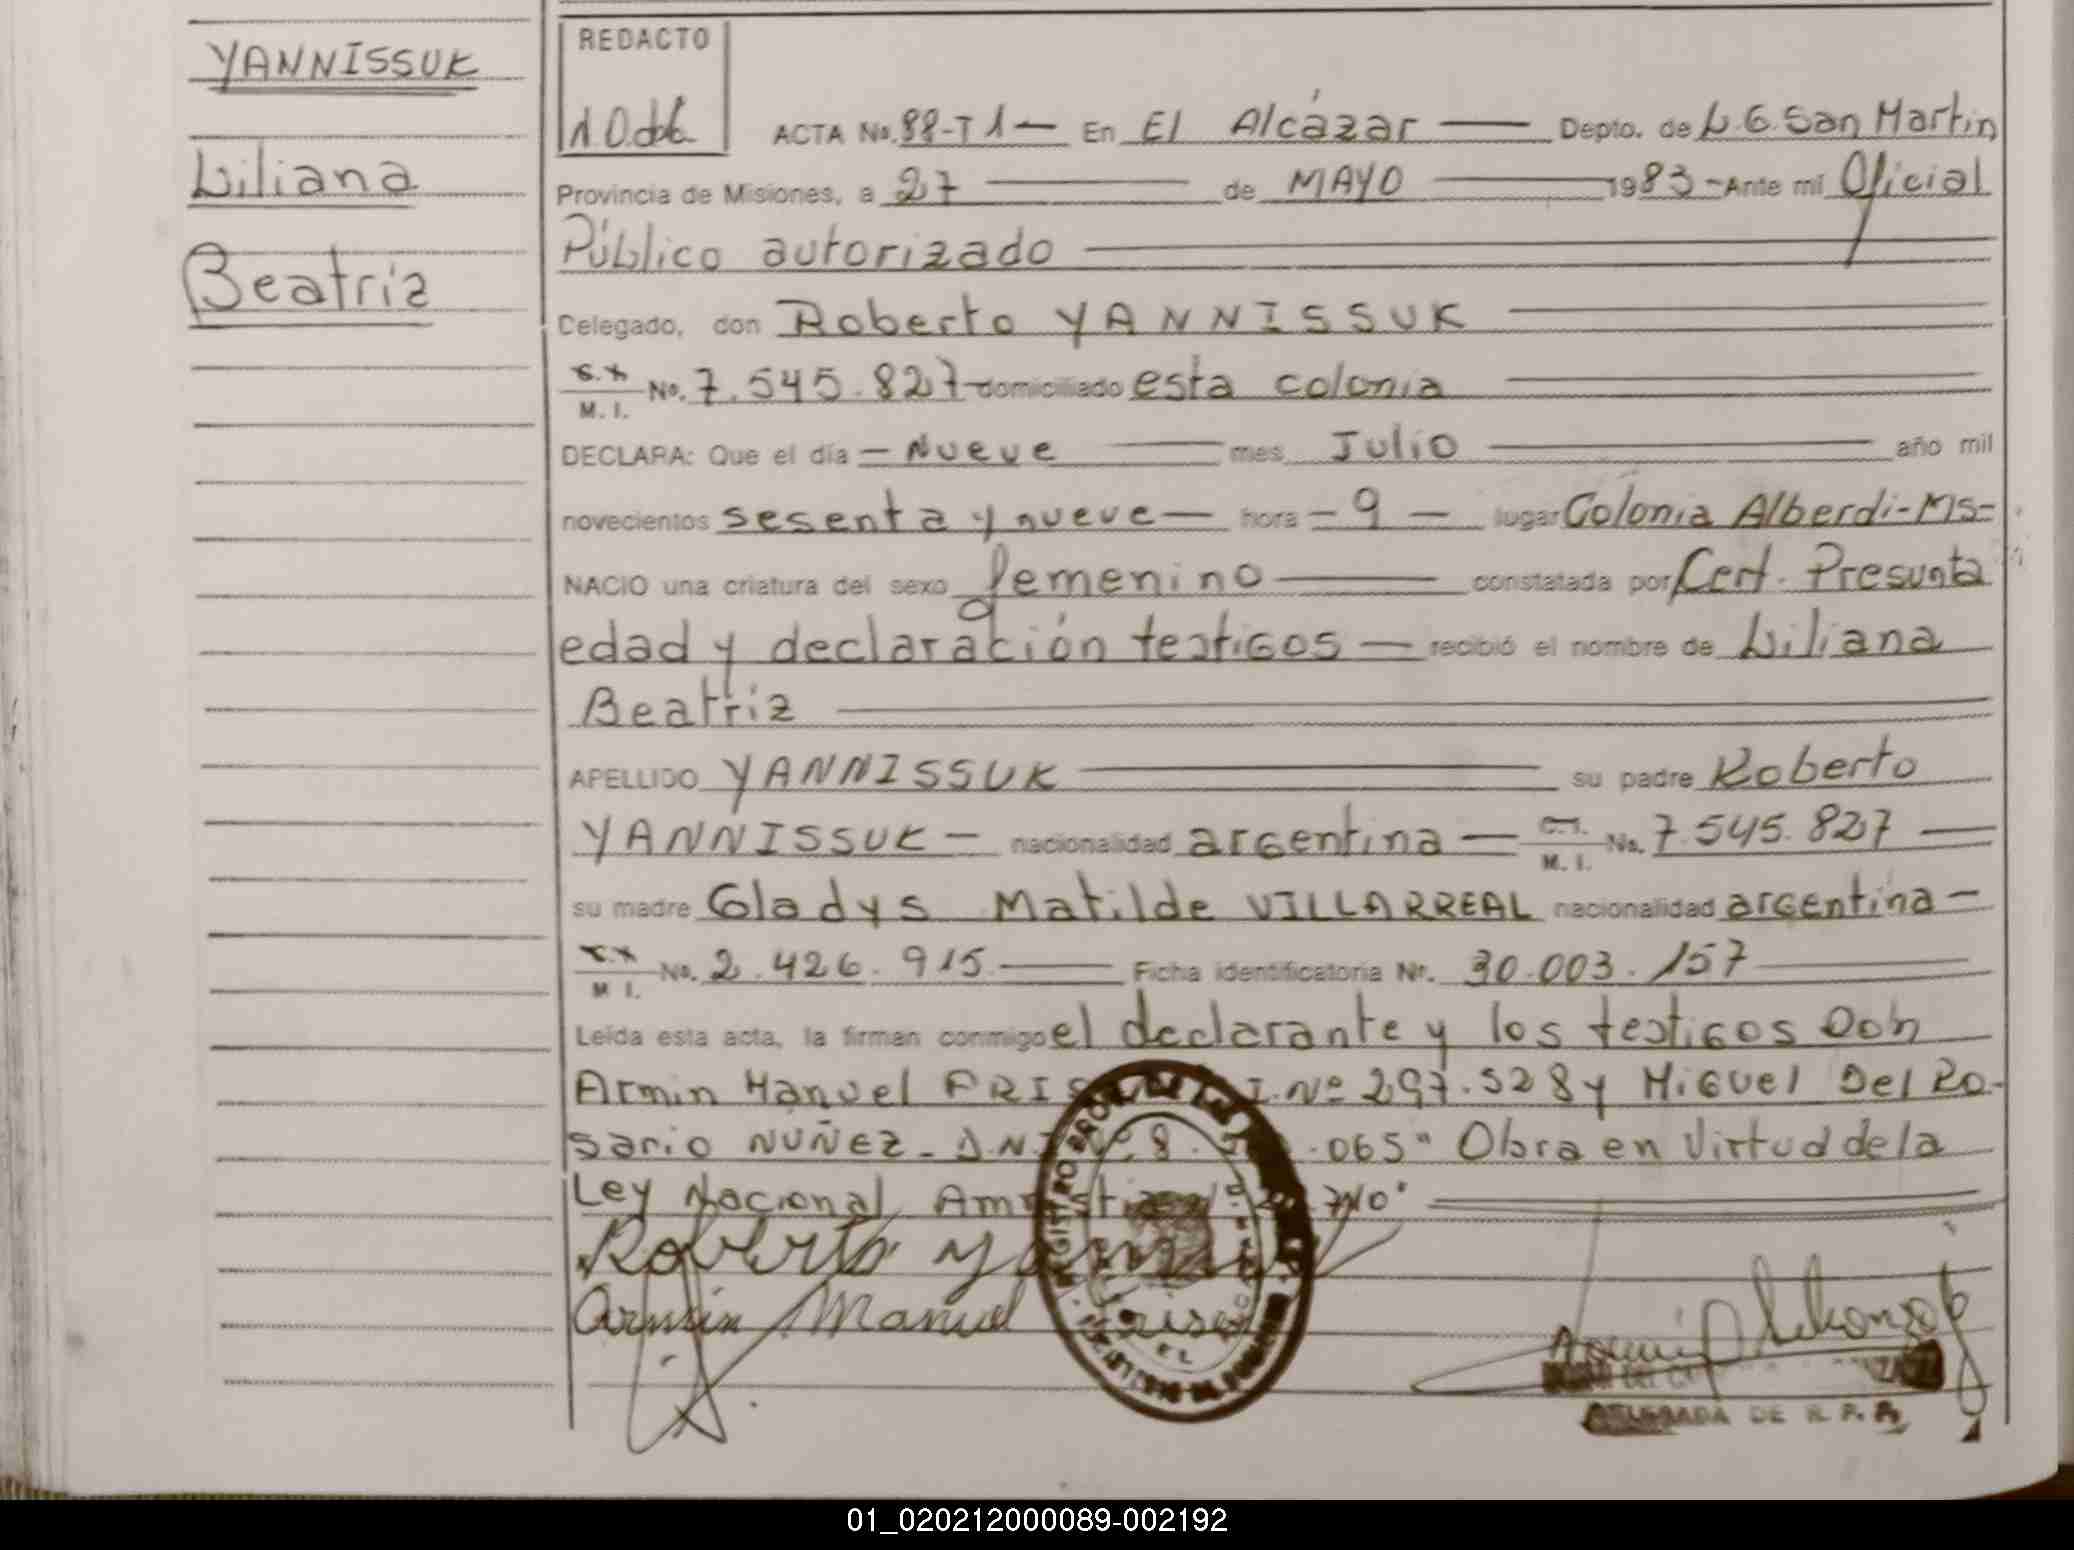 YANNISSUK
Liliana
Beatriz
REDACTO
ACTA No. 88-T1- En El Alcázar Depto. de L.G. San Martin
Provincia de Misiones, a 27 de MAYO 1983- Ante mi Oficial
Público autorizado
Delegado, don Roberto YANNISSUK
M. I. No. 7.545.827 domiciliado esta colonia
DECLARA: Que el día - Nueve mes Julio año mil
novecientos sesenta y nueve - hora - 9 - lugar Colonia Alberdi-Ms-
NACIO una criatura del sexo femenino constatada por Cert. Presunta
edad y declaración testigos - recibió el nombre de Liliana
Beatriz
APELLIDO YANNISSUK su padre Roberto
YANNISSUK - nacionalidad argentina - C.I. M. I. No. 7.545.827
su madre Gladys Matilde VILLARREAL nacionalidad argentina -
M I. No. 2.426.915 Ficha identificatoria Nr. 30.003.157
Leída esta acta, la firman conmigo el declarante y los testigos Don
Armin Manuel Nº 297.528 y Miguel Del Ro-
sario NUÑEZ - D.N. 8. .065" Obra en Virtud de la
Ley Nacional
Roberto
Armin Manuel
DELEGADA DE R. P. P.
01_020212000089-002192